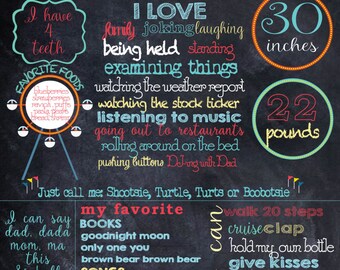 I have
4
teeth
I LOVE
family joking laughing
being held standing
examining things
watching the weather report
watching the stock ticker
listening to music
going out to restaurants
rolling around on the bed
pushing buttons DJ-ing with Dad
30
inches
FAVORITE FOODS
blueberries
22
pounds
Just call me: Shootsie, Turtle, Turts or Bootsie
I can say
dad, dada
mom, ma
this
my favorite
BOOKS
goodnight moon
only one you
brown bear brown bear
SONGS
can
walk 20 steps
cruise clap
hold my own bottle
give kisses